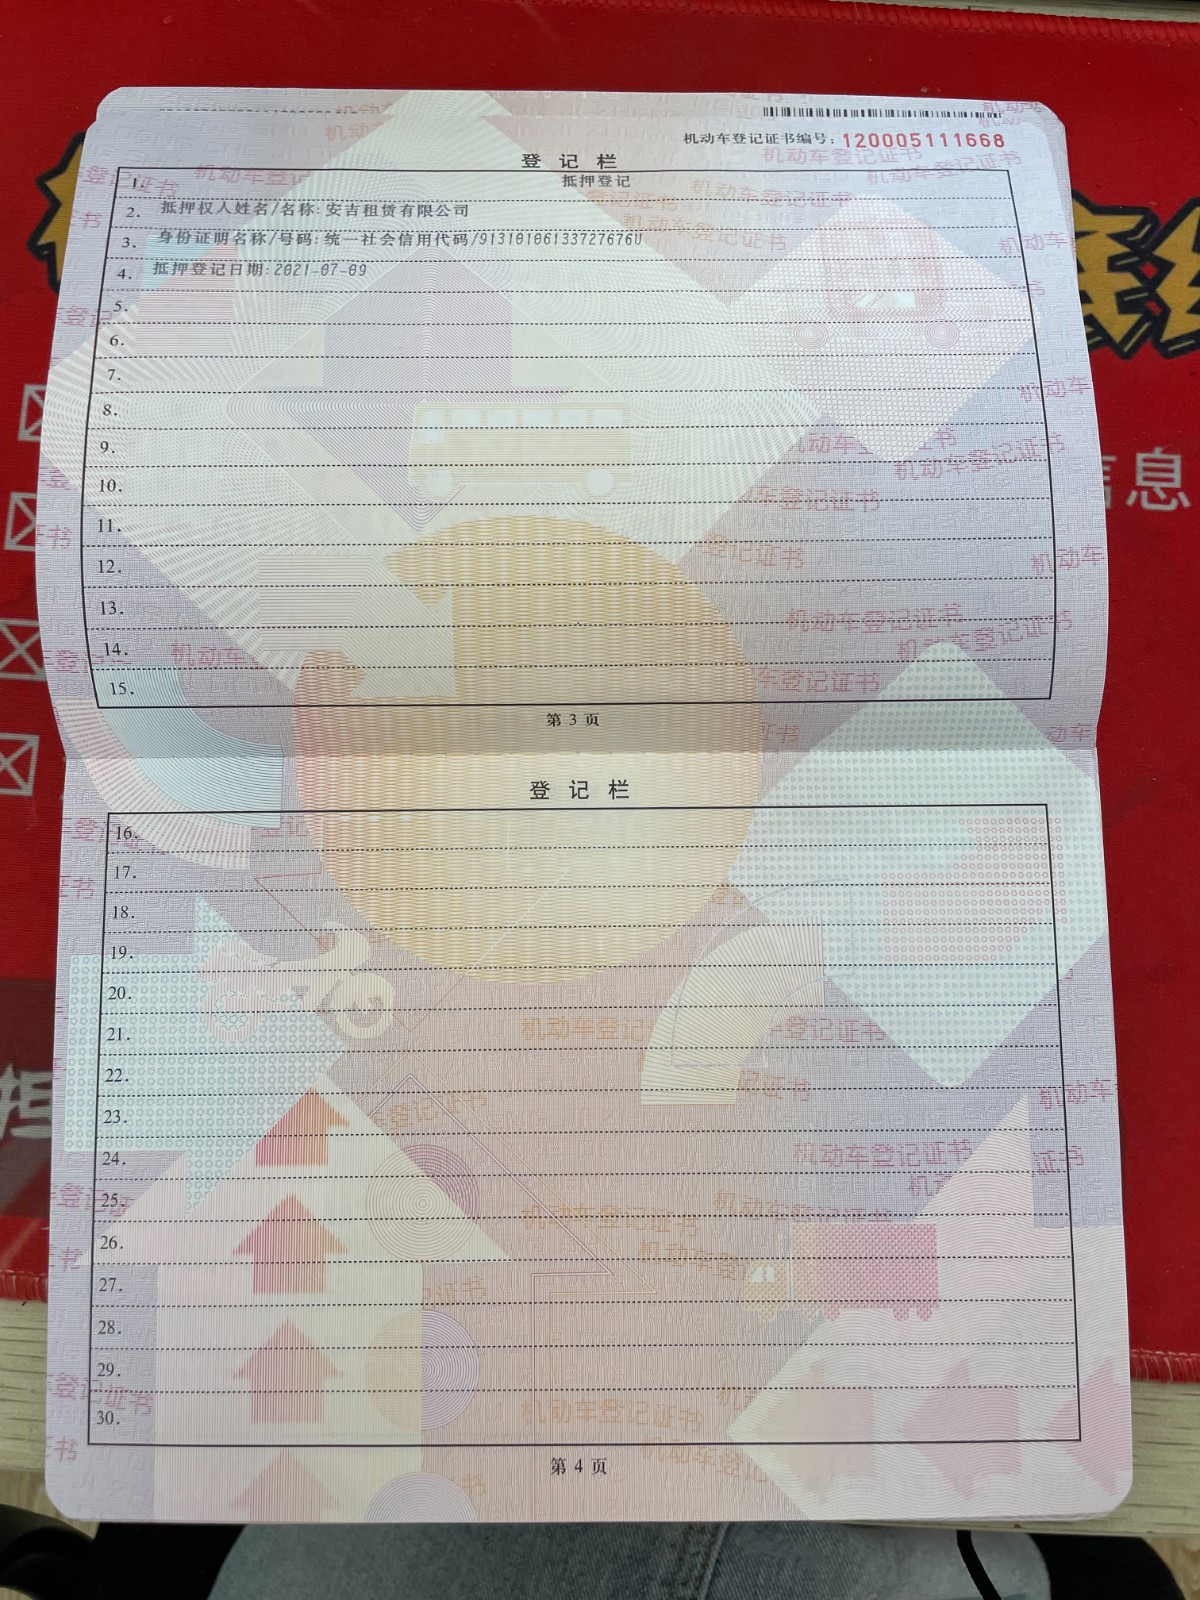 机动车登记证书编号：120005111668
登 记 栏
1. 抵押登记
2. 抵押权人姓名/名称:安吉租赁有限公司
3. 身份证明名称/号码:统一社会信用代码/91310106133727676U
4. 抵押登记日期:2021-07-09
5.
6.
7.
8.
9.
10.
11.
12.
13.
14.
15.
第 3 页
登 记 栏
16.
17.
18.
19.
20.
21.
22.
23.
24.
25.
26.
27.
28.
29.
30.
第 4 页
信息